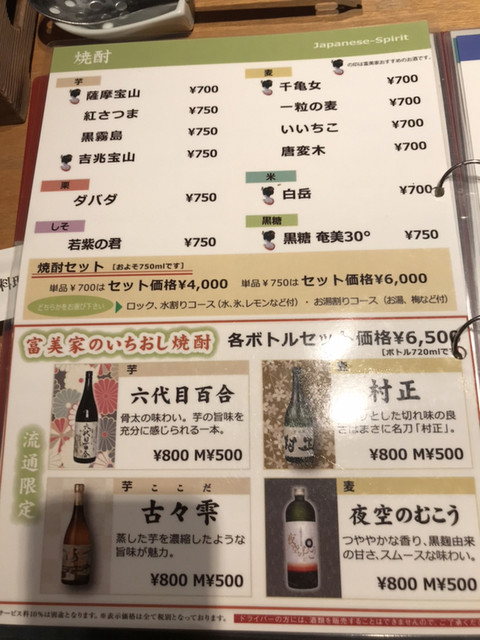 焼酎
Japanese-Spirit
の印は富美家おすすめのお酒です。
芋
薩摩宝山 ¥700
紅さつま ¥750
黒霧島 ¥750
吉兆宝山 ¥750
栗
ダバダ ¥750
しそ
若紫の君 ¥750
麦
千亀女 ¥700
一粒の麦 ¥700
いいちこ ¥700
唐変木 ¥700
米
白岳 ¥700
黒糖
黒糖 奄美30° ¥750
焼酎セット [およそ750mlです]
単品 ¥700は セット価格¥4,000 単品 ¥750は セット価格¥6,000
どちらかをお選び下さい ▶ ・ロック、水割りコース(水、氷、レモンなど付) ・お湯割りコース(お湯、梅など付)
富美家のいちおし焼酎 各ボトルセット価格¥6,500
[ボトル720mlで
流通限定
芋
六代目百合
骨太の味わい。芋の旨味を
充分に感じられる一本。
¥800 M¥500
村正
とした切れ味の良
さはまさに名刀「村正」。
¥800 M¥500
芋 ここだ
古々雫
蒸した芋を濃縮したような
旨味が魅力。
¥800 M¥500
麦
夜空のむこう
つややかな香り、黒麹由来
の甘さ、スムースな味わい。
¥800 M¥500
サービス料10%は別途となります。※表示価格は全て税別となっております。
ドライバーの方には、酒類を販売することはできませんので、ご了承くだ